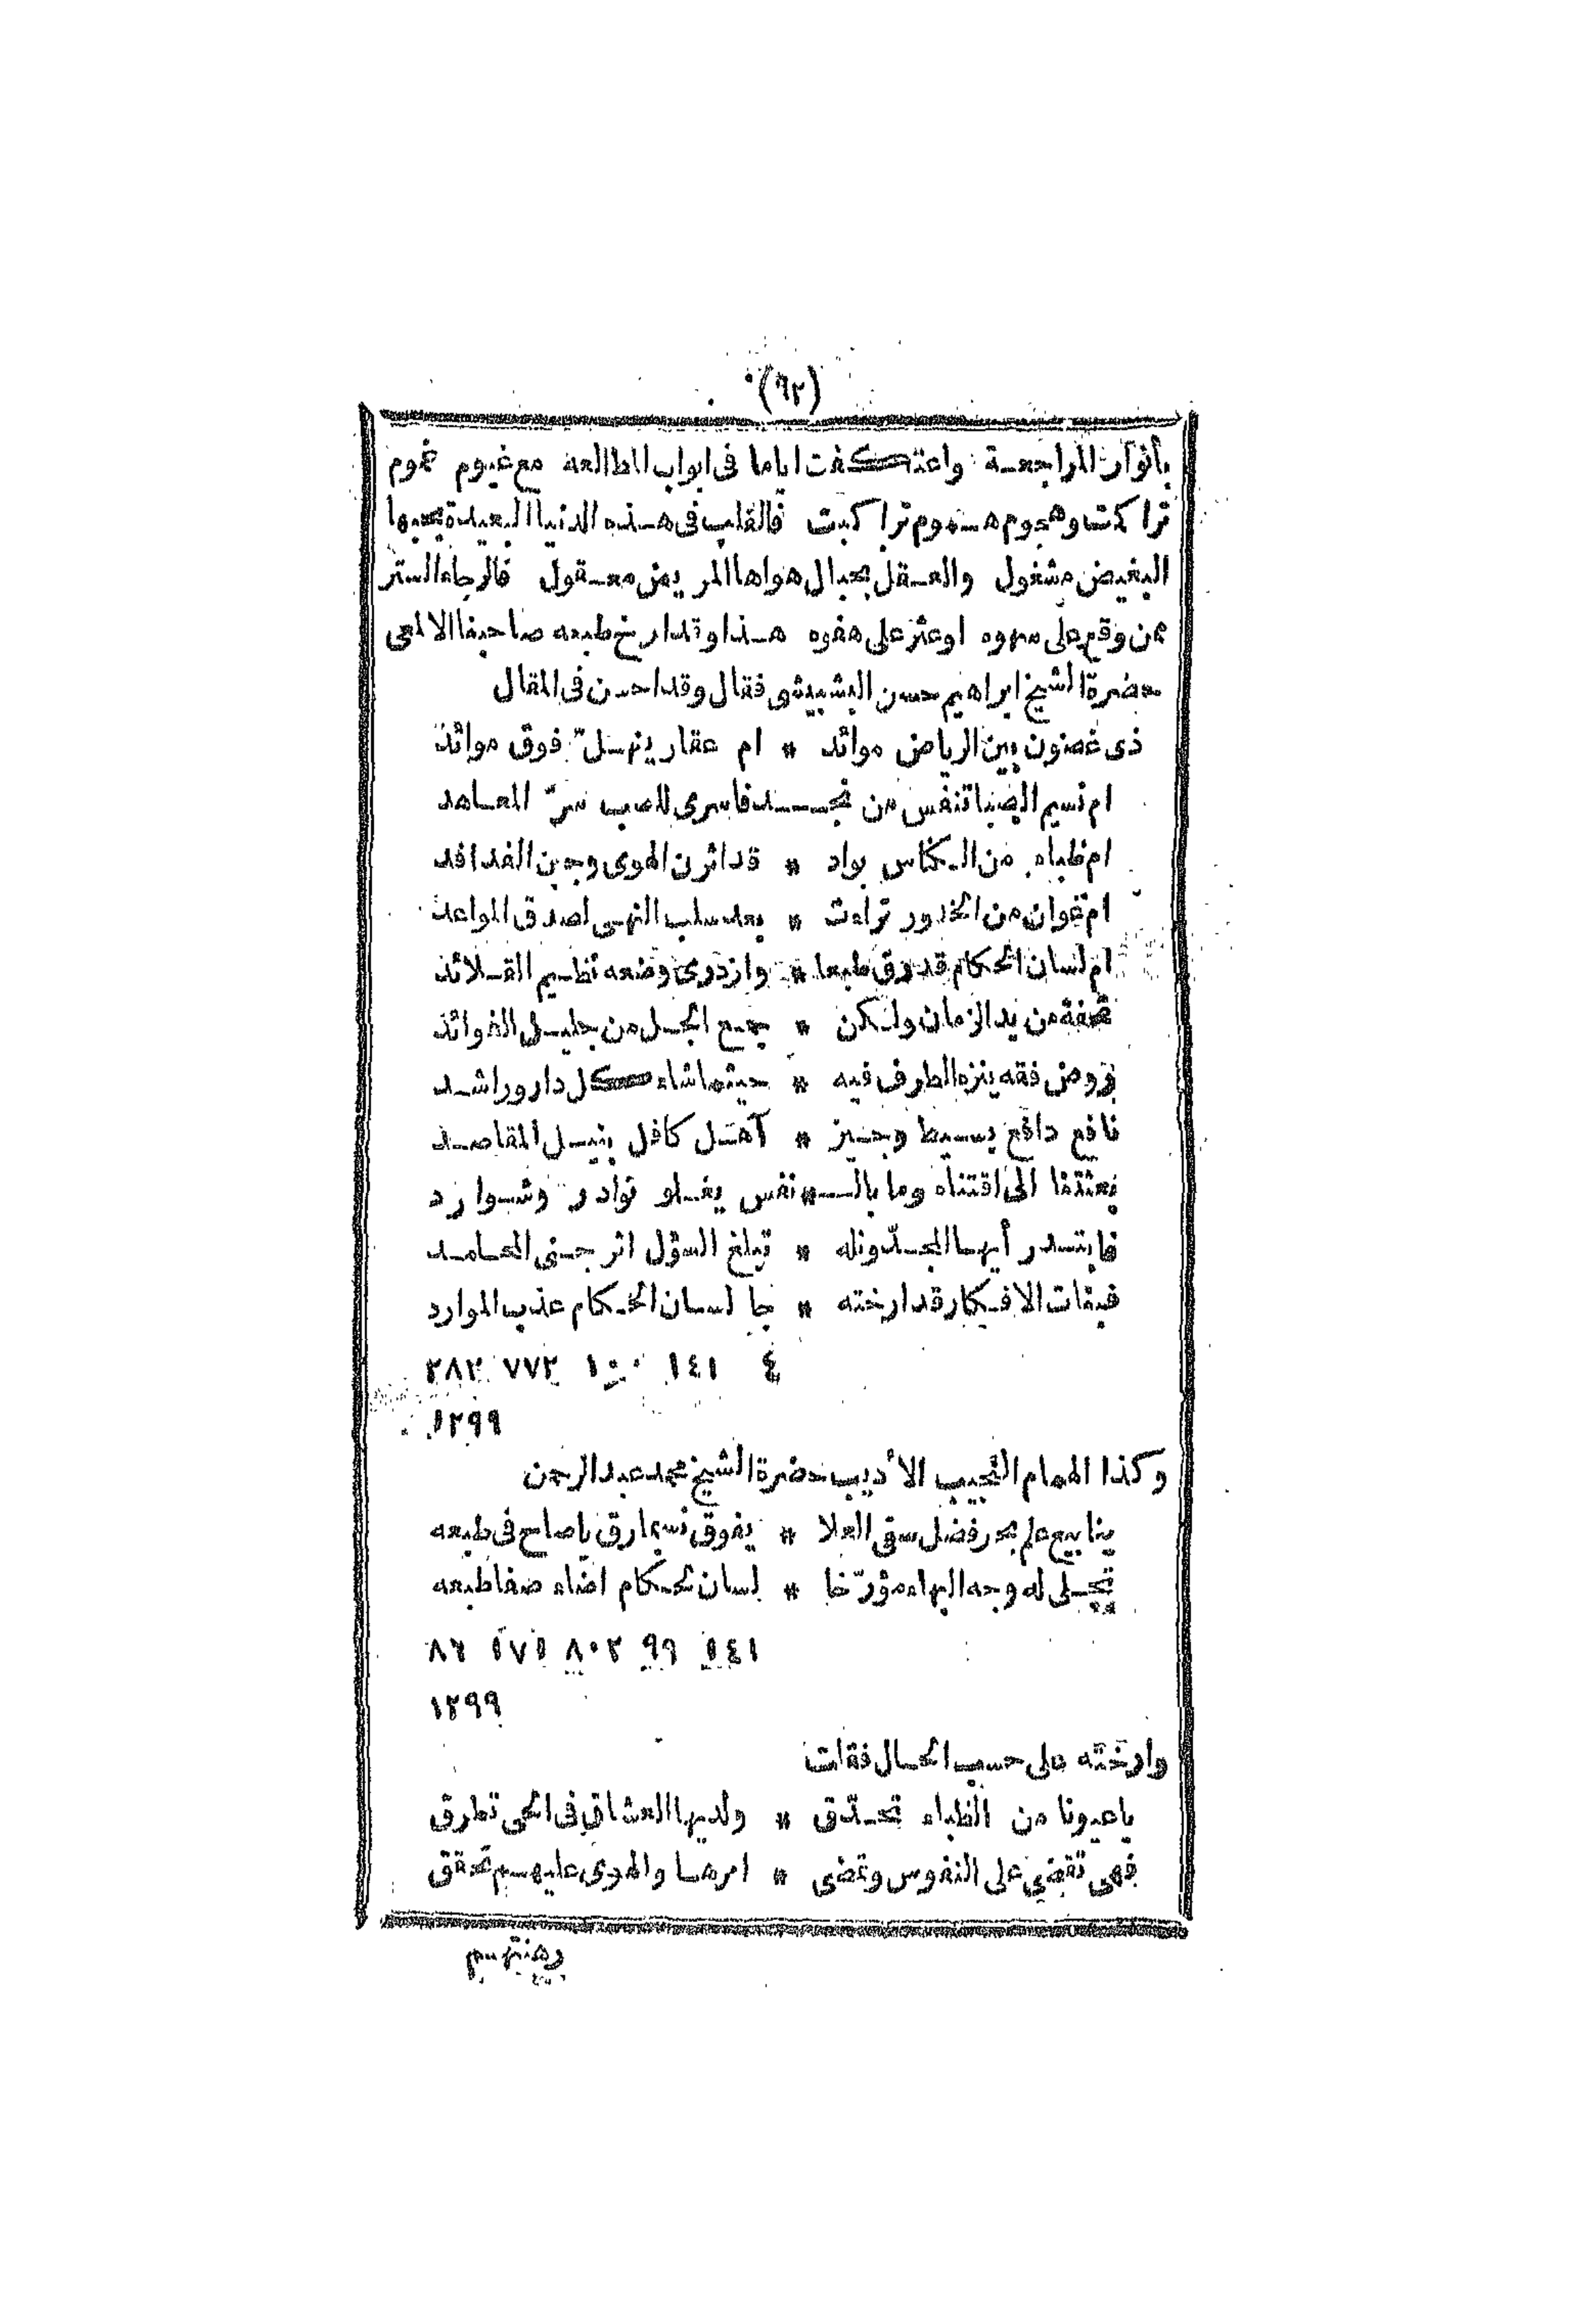 (٩٢)
بأنوار المراجعة واعتكفت اياما فى ابواب المطالعه مع غيوم غموم
تراكمت وهجوم هموم تراكبت فالقلب فى هذه الدنيا البعيدة بحبها
البغيض مشغول والعقل بحبال هواها المريض معقول فالرجاء الستر
ممن وقع على سهوه او عثر على هفوه هذا وقد ارخ طبعه صاحبنا الالمعى
حضرة الشيخ ابراهيم حسن البشبيشى فقال وقد احسن فى المقال
ذى غصون بين الرياض موائد * ام عقار ينهل فوق موائد
ام نسيم الصبا تنفس من نجـــد فاسرى للصب سرّ المعاهد
ام ظباء من الكناس بواد * قد اثرن الهوى وجبن الفدافد
ام غوان من الخدور تراءت * بعد سلب النهى لصدق المواعد
ام لسان الحكام قد رق طبعا * وازدرى وضعه نظيم القلائد
تحفة من يد الزمان ولكن * جمع الجل من جليل الفوائد
روض فقه ينزه الطرف فيه * حيثما شاء كل دار وراشد
نافع دافع بسيط وجيز * آهل كافل بنيل المقاصد
بعثتنا الى اقتناه وما بالـــ*نفس يغلو نوادر وشوارد
فابتدر أيها المجدّ ونله * تبلغ السؤل اثر جنى المحامد
فبنات الافكار قد ارخته * جا لسان الحكام عذب الموارد
٤ ١٤١ ١٠٠ ٧٧٢ ٢٨٢
١٢٩٩
وكذا الهمام النجيب الأديب حضرة الشيخ محمد عبد الرحمن
ينابيع علم بحر فضل سقى العلا * يفوق نسيما رق يا صاح فى طبعه
تجلى له وجه البهاء مؤرّخا * لسان لحكام اضاء صفا طبعه
١٤١ ٩٩ ٨٠٢ ١٧١ ٨٦
١٢٩٩
وارخته على حسب الحال فقلت
يا عيونا من الظباء تحدّق * ولديها العشاق فى الحى تطرق
فهى تقضى على النفوس وتمضى * امرها والهوى عليهم محقق